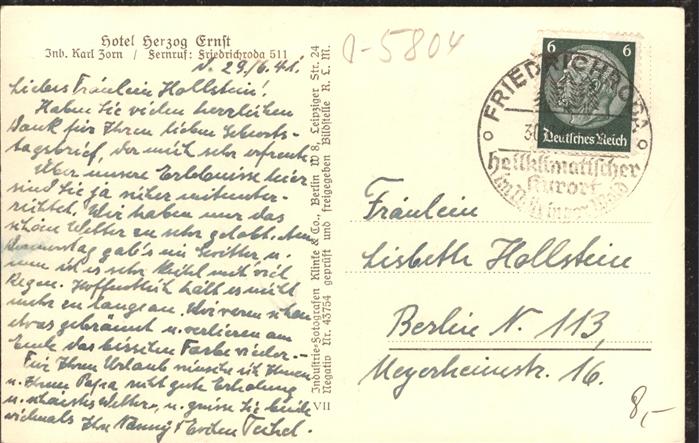 Hotel Herzog Ernst
Inh. Karl Zorn / Fernruf: Friedrichroda 511
d. 29./6.41.
Liebes Fräulein Hollstein!
Haben Sie vielen herzlichen
Dank für Ihren lieben Geburts-
tagsbrief, der mich sehr erfreute.
Über unsere Erlebnisse hier
sind Sie ja sicher mitunter-
richtet. Wir haben nur das
schöne Wetter zu sehr gelobt. Am
Donnerstag gab's ein Gewitter, u.
nun ist es sehr kühl mit viel
Regen. Hoffentlich hält es nicht
mehr zu lange an. Wir waren schon
etwas gebräunt u. verlieren am
Ende das bisschen Farbe wieder.-
Für Ihren Urlaub wünsche ich Ihnen
u. Ihrem Papa recht gute Erholung
u. schönstes Wetter, u. grüsse Sie beide
vielmals Ihr Teichel.
Industrie-Fotografen Klinke & Co., Berlin W 8, Leipziger Str. 24
Negativ Nr. 43754 geprüft und freigegeben Bildstelle R. L. M.
VII
5804
6 6
Deutsches Reich
FRIEDRICHRODA
30
heilklimatischer
Kurort
im Thüringer Wald
Fräulein
Lisbeth Hollstein
Berlin N. 113,
Meyerheimstr. 16.
8,-